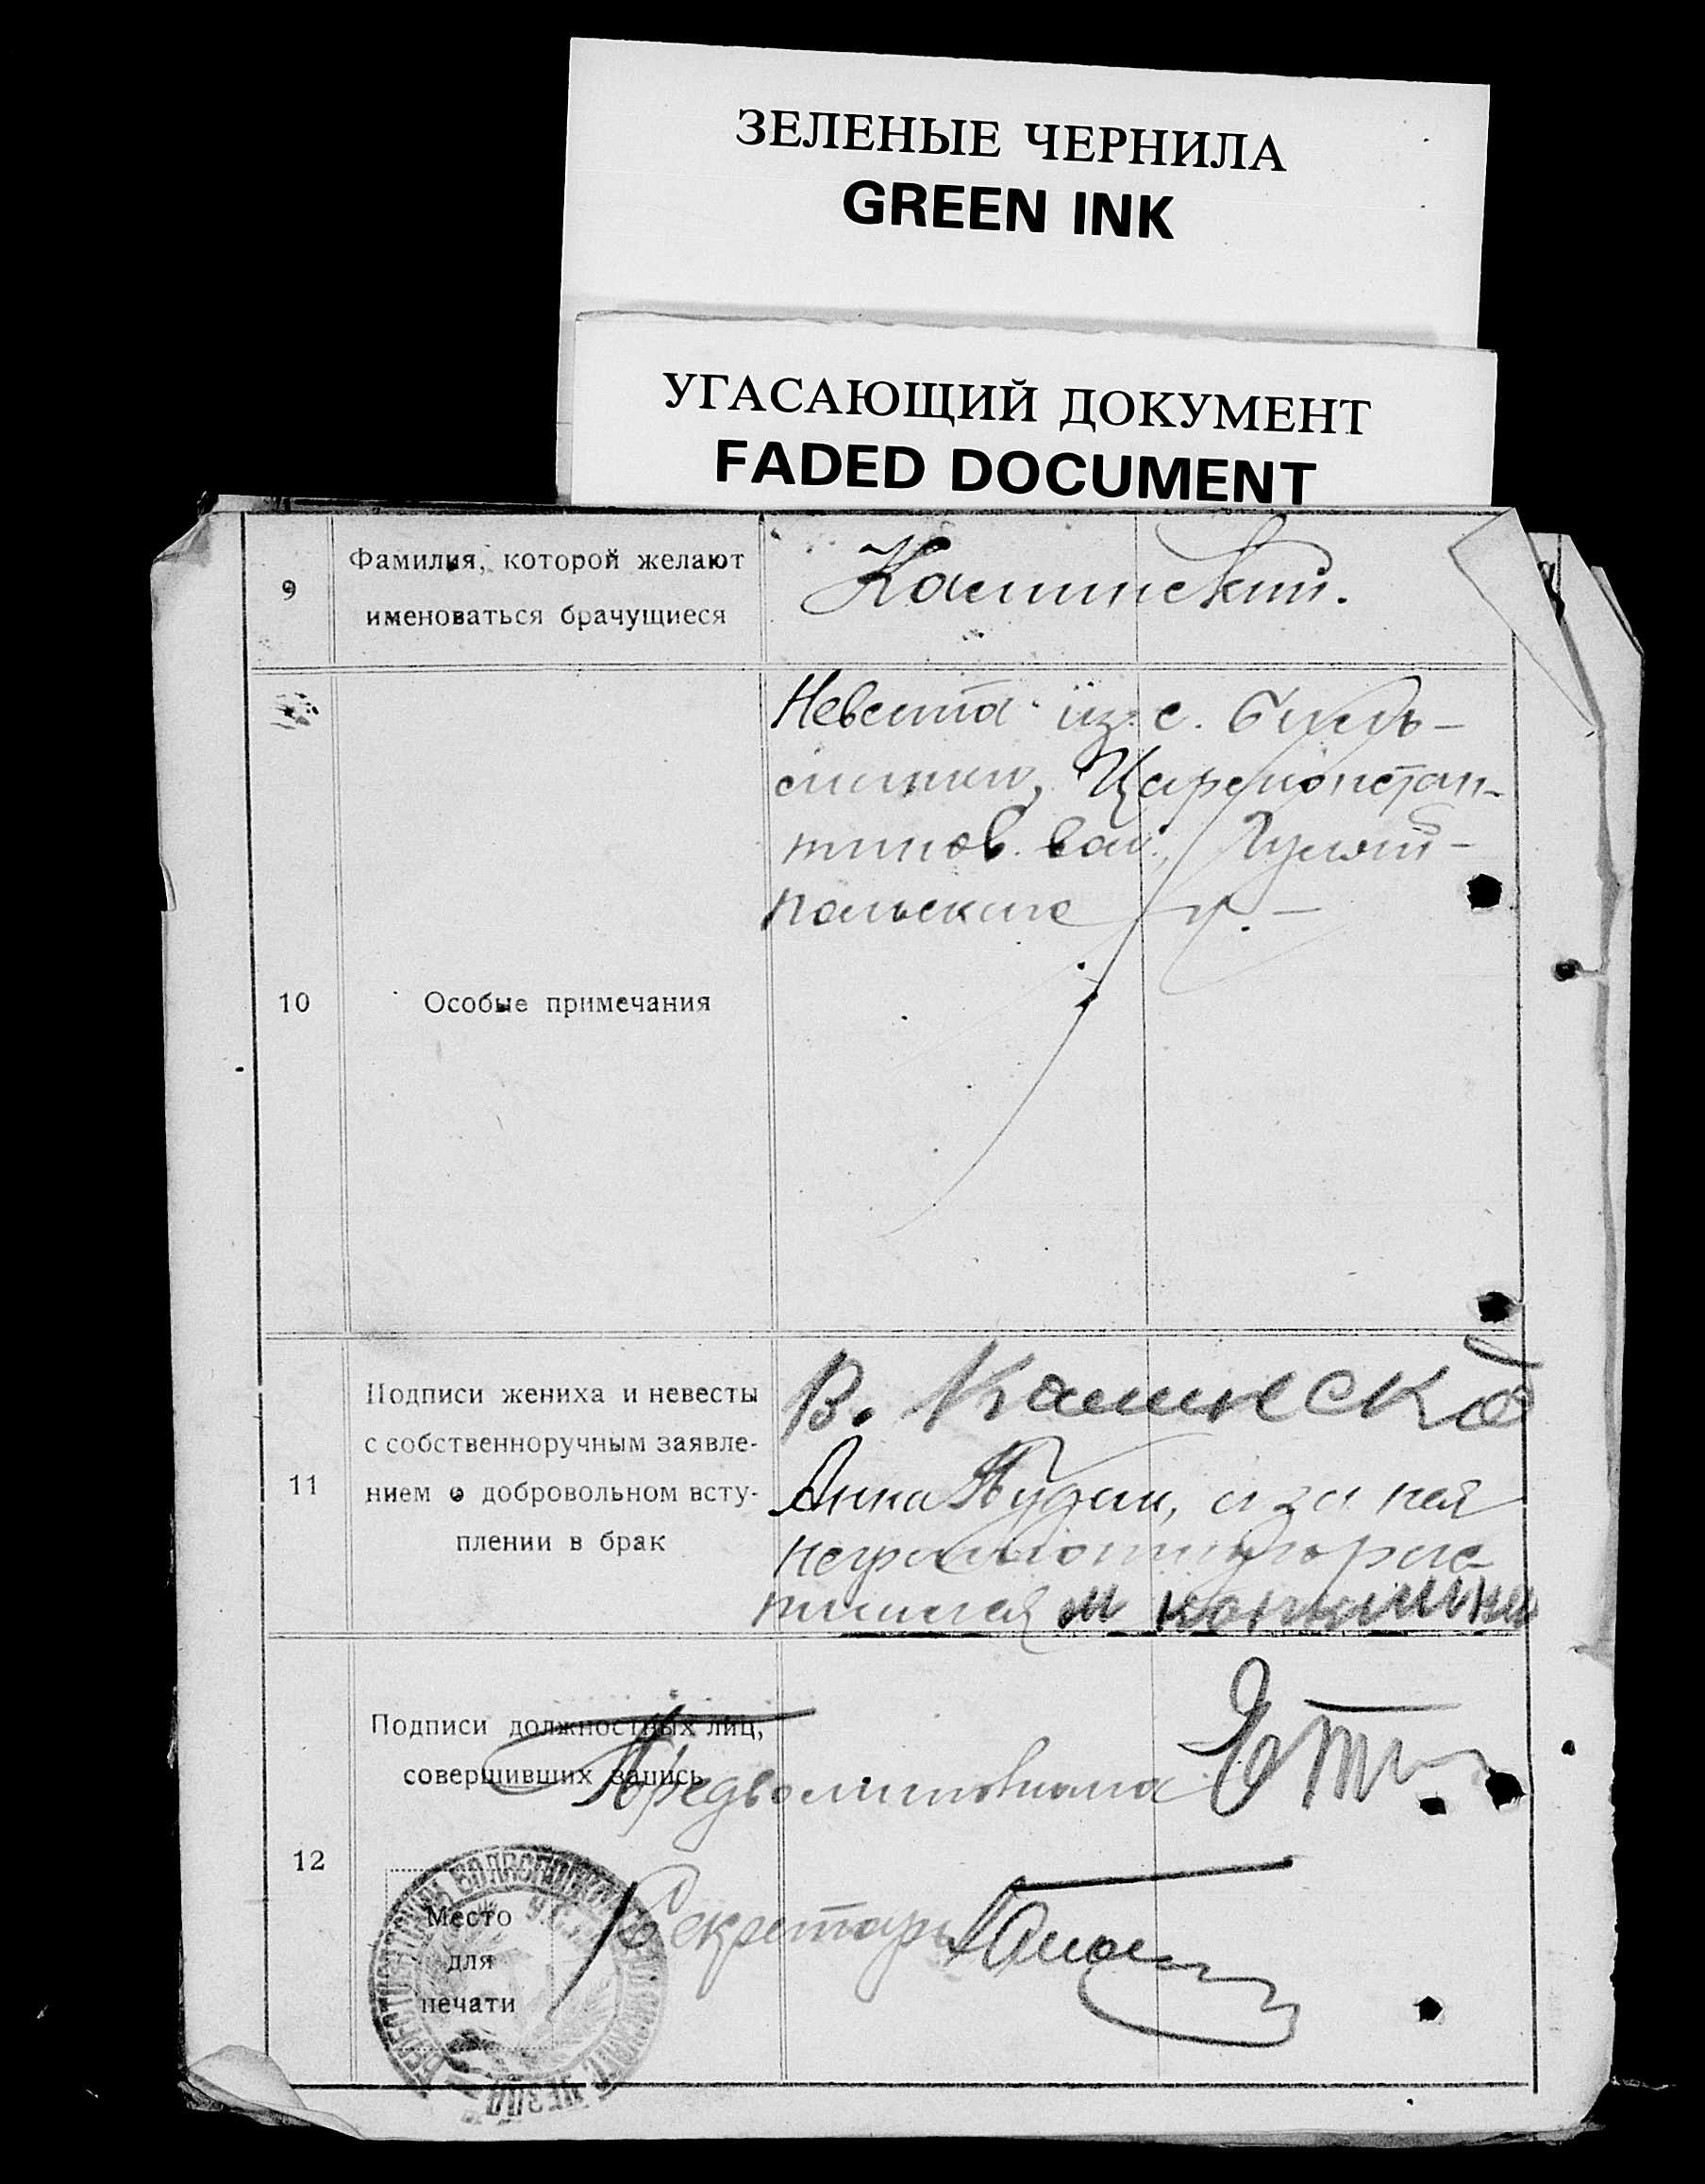 ЗЕЛЕНЫЕ ЧЕРНИЛА
GREEN INK
УГАСАЮЩИЙ ДОКУМЕНТ
FADED DOCUMENT
9
Фамилия, которой желают
именоваться брачущиеся
Каминский.
10
Особые примечания
Невеста из с.
Цареконстан-
тинов. вол., Гуляй-
польского у. —
11
Подписи жениха и невесты
с собственноручным заявле-
нием о добровольном всту-
плении в брак
В.
Анна а за нея
неграмотную рас-
писался
12
Подписи должностных лиц,
совершивших запись
Предволисполкома
Секретарь
Место
для
печати